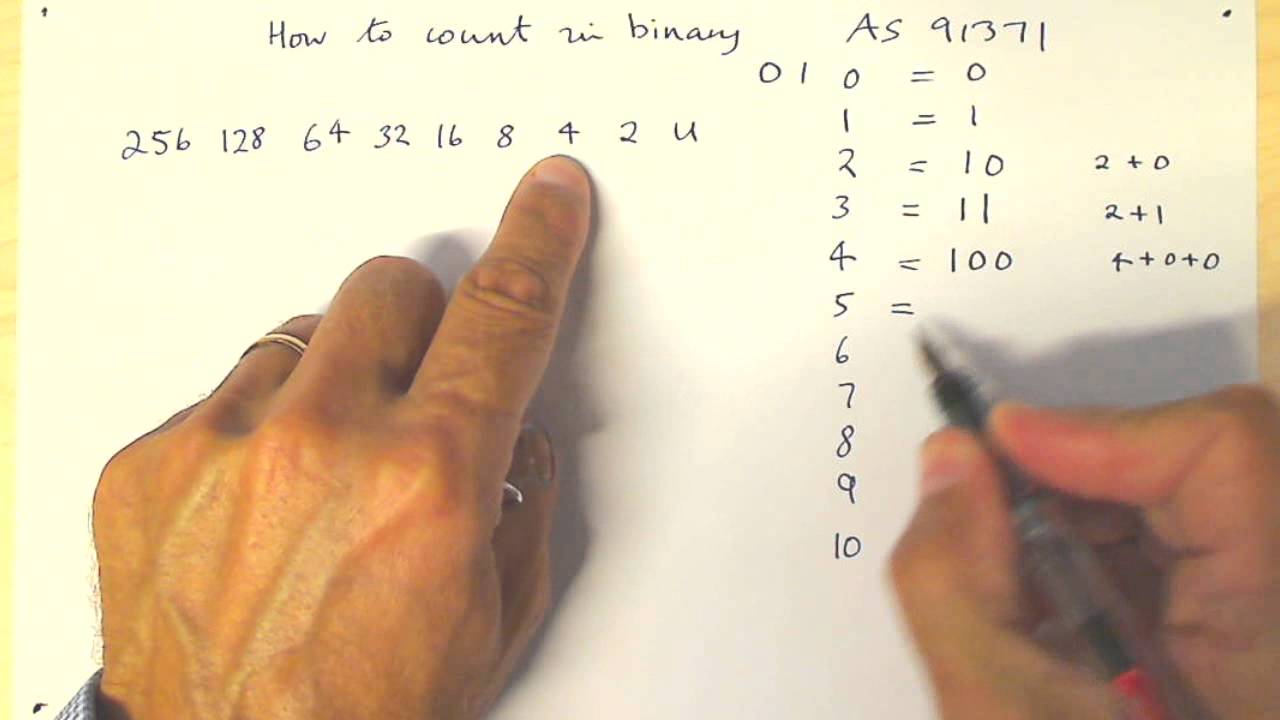 How to count in binary AS 91371
0 1 0 = 0
256 128 64 32 16 8 4 2 U
1 = 1
2 = 10 2 + 0
3 = 11 2+1
4 = 100 4+0+0
5 =
6
7
8
9
10